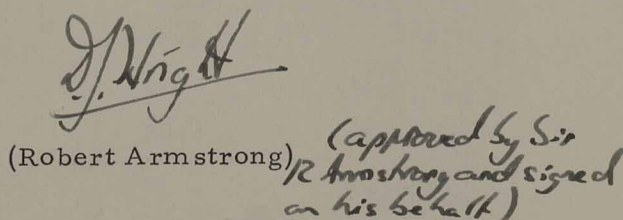 D.J. Wright
(Robert Armstrong)
(approved by Sir
R Armstrong and signed
on his behalf)